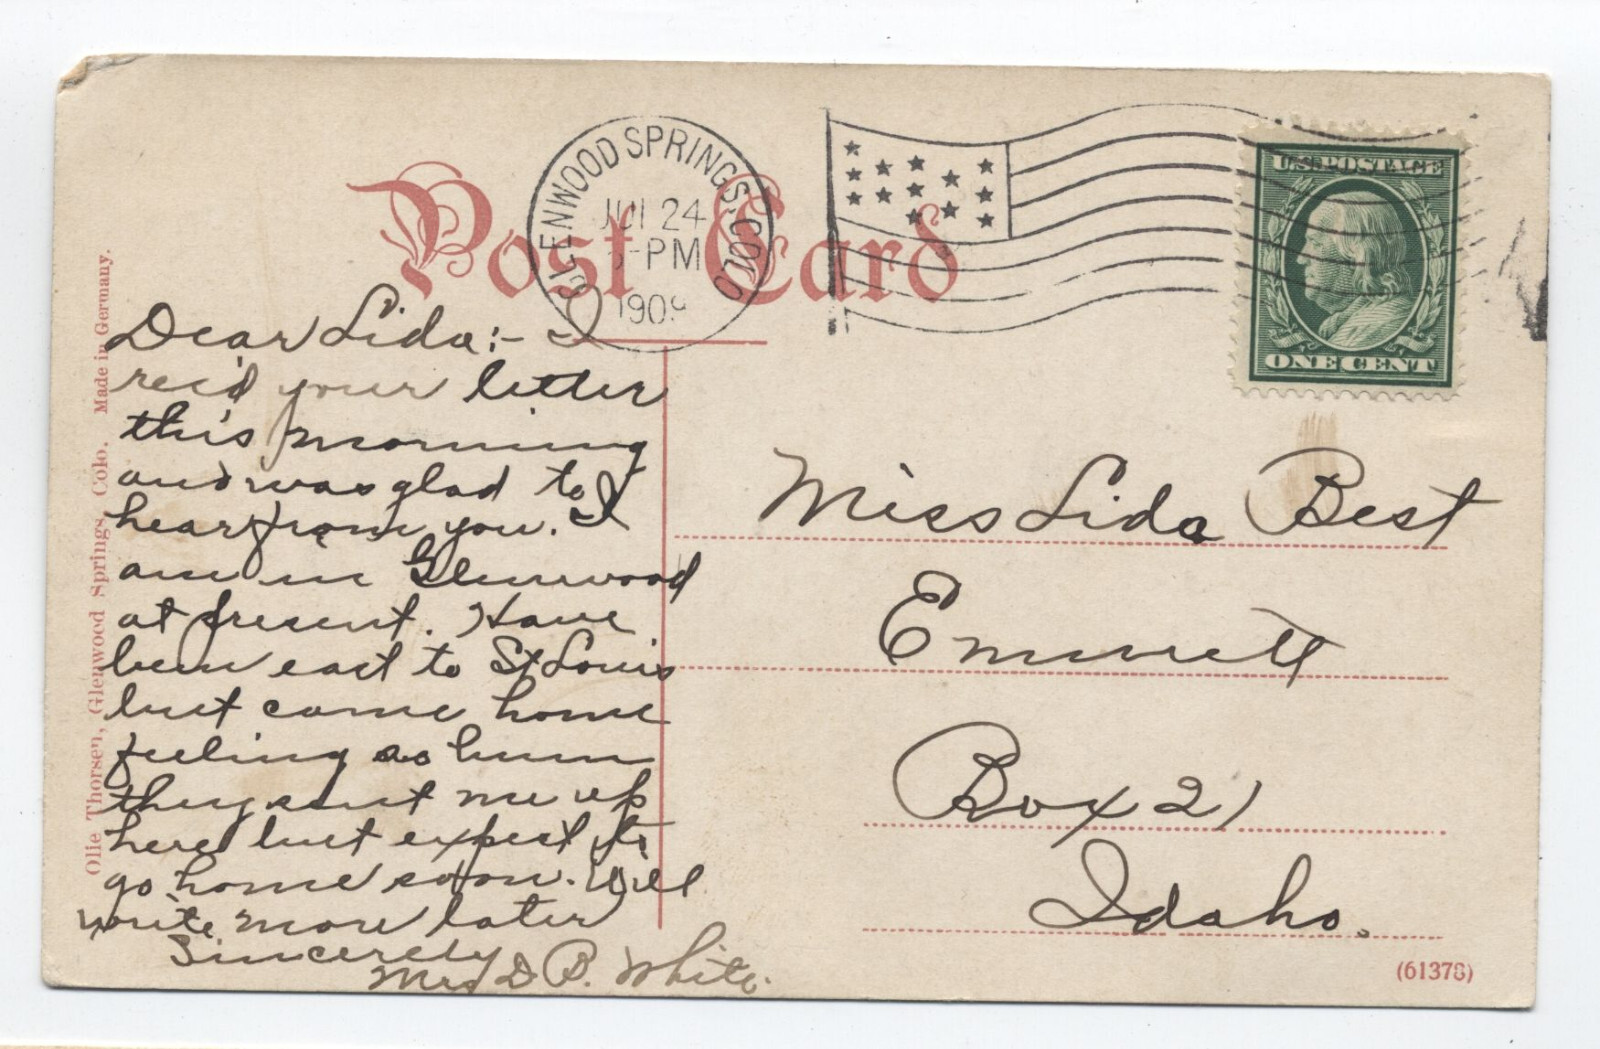 Post Card
GLENWOOD SPRINGS, COLO
JUL 24
-PM
1909
U.S. POSTAGE
ONE CENT
Olie Thorsen, Glenwood Springs, Colo. Made in Germany.
Dear Lida:- I
rec'd your letter
this morning
and was glad to
hear from you. I
am in Glenwood
at present. Have
been east to St Louis
but came home
feeling so bum
they sent me up
here but expect to
go home soon. Will
write more later
Sincerely
Mrs D B. White.
Miss Lida Best
Emmett
Box 21
Idaho.
(61378)